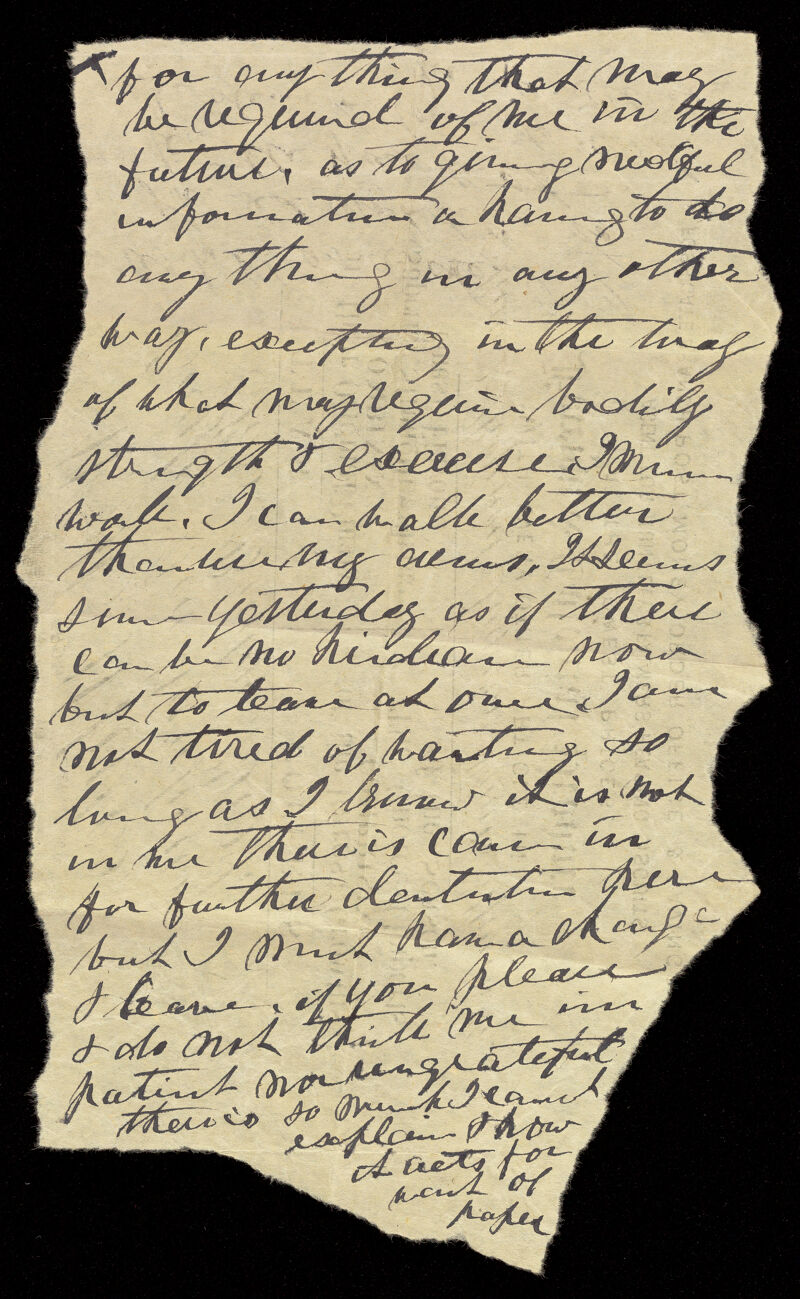 for any thing that may
be required of me in the
future, as to giving needful
information or having to do
any thing in any other
way, excepting in the way
of what may require bodily
strength & exercise, I mean
work. I can walk better
than use my arms, It seems
since yesterday as if there
can be no hindrance now
but to leave at once I am
not tired of waiting so
long as I know it is not
in me there is cause in
for further detention here
but I must have a change
& leave, if you please
& do not think me im
patient nor ungrateful
there is so much I cannot
explain & how
it acts for
want of
paper